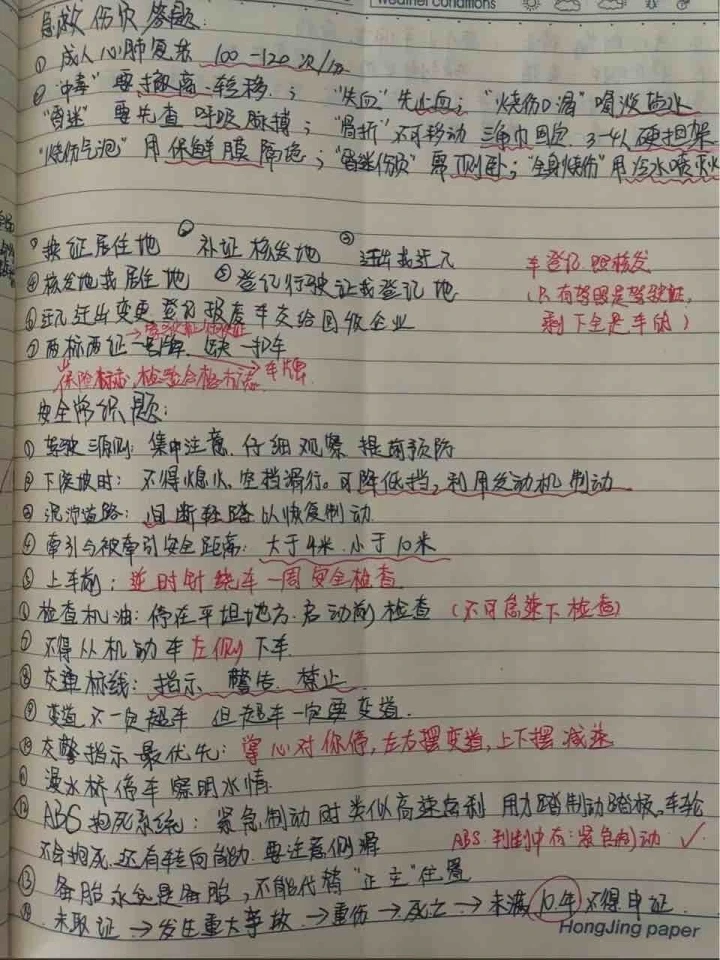 Weather conditions
急救伤员答题:
① 成人心肺复苏 100-120次/分
② "中毒" 要撤离.转移.; "失血"先止血; "烧伤口渴"喝淡盐水
"昏迷" 要先查呼吸脉搏; "骨折"不可移动 三角巾固定.3-4人硬担架
"烧伤气泡" 用保鲜膜隔绝; "昏迷伤员"要侧卧; "全身烧伤"用冷水喷灭火
① 换证居住地 ② 补证核发地 ③ 迁出我迁入
车登记.照核发
④ 核发地我居住地 ⑤ 登记行驶证我登记地
(只有驾照是驾驶证,
⑥ 迁入迁出变更登记报废车交给回收企业
剩下全是车的)
⑦ 两标两证一号牌.缺一扣车
保险标志,检验合格标志 → 车牌
安全常识题:
① 驾驶三原则: 集中注意.仔细观察 提前预防
② 下陡坡时: 不得熄火.空挡滑行。可降低挡,利用发动机制动
③ 泥泞道路: 间断轻踏以恢复制动
④ 牵引与被牵引安全距离: 大于4米.小于10米
⑤ 上车前: 逆时针绕车一周安全检查
检查机油: 停在平坦地方.启动前检查 (不可怠速下检查)
⑦ 不得从机动车左侧下车.
⑧ 交通标线: 指示 警告 禁止
⑨ 变道不一定超车 但超车一定要变道.
⑩ 交警指示最优先: 掌心对你停,左右摆变道,上下摆减速
⑪ 漫水桥停车察明水情
⑫ ABS抱死系统: 紧急制动时类似高速点刹 用力踏制动踏板。车轮
不会抱死.还有转向能力.要注意侧滑
ABS.判断中有:紧急制动 ✓
⑬ 备胎永远是备胎,不能代替"正主"位置
未取证→发生重大事故→重伤→死亡→未满10年不得申证.
HongJing paper